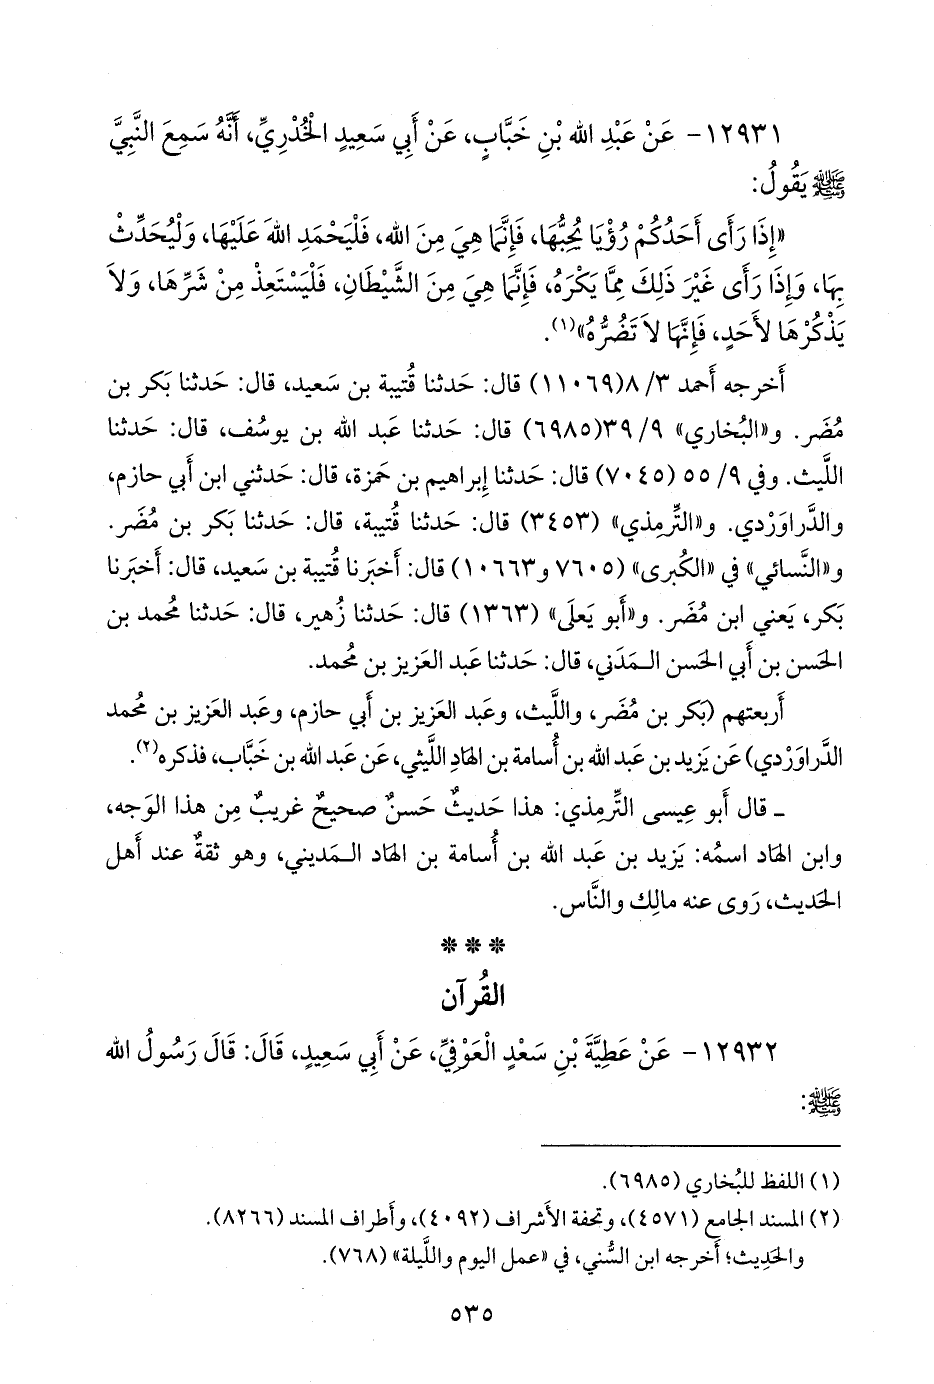 ١٢٩٣١- عَنْ عَبْدِ الله بْنِ خَبَّابٍ، عَنْ أَبِي سَعِيدٍ الْخُدْرِيِّ، أَنَّهُ سَمِعَ النَّبِيَّ
ﷺ يَقُولُ:
«إِذَا رَأَى أَحَدُكُمْ رُؤْيَا يُحِبُّهَا، فَإِنَّمَا هِيَ مِنَ الله، فَلْيَحْمَدِ اللهَ عَلَيْهَا، وَلْيُحَدِّثْ
بِهَا، وَإِذَا رَأَى غَيْرَ ذَلِكَ مِمَّا يَكْرَهُ، فَإِنَّمَا هِيَ مِنَ الشَّيْطَانِ، فَلْيَسْتَعِذْ مِنْ شَرِّهَا، وَلاَ
يَذْكُرْهَا لأَحَدٍ، فَإِنَّهَا لاَ تَضُرُّهُ»(١).
أَخرجه أَحمد ٣/ ٨(١١٠٦٩) قال: حَدثنا قُتيبة بن سَعيد، قال: حَدثنا بَكر بن
مُضَر. و«البُخاري» ٩/ ٣٩(٦٩٨٥) قال: حَدثنا عَبد الله بن يوسُف، قال: حَدثنا
اللَّيث. وفي ٩/ ٥٥ (٧٠٤٥) قال: حَدثنا إِبراهيم بن حَمزة، قال: حَدثني ابن أَبي حازم،
والدَّراوَرْدي. و«التِّرمِذي» (٣٤٥٣) قال: حَدثنا قُتيبة، قال: حَدثنا بَكر بن مُضَر.
و«النَّسائي» في «الكُبرى» (٧٦٠٥ و١٠٦٦٣) قال: أَخبَرنا قُتيبة بن سَعيد، قال: أَخبَرنا
بَكر، يَعني ابن مُضَر. و«أَبو يَعلَى» (١٣٦٣) قال: حَدثنا زُهير، قال: حَدثنا مُحمد بن
الحَسن بن أَبي الحَسن المَدَني، قال: حَدثنا عَبد العَزيز بن مُحمد.
أَربعتهم (بَكر بن مُضَر، واللَّيث، وعَبد العَزيز بن أَبي حازم، وعَبد العَزيز بن مُحمد
الدَّراوَرْدي) عَن يَزيد بن عَبد الله بن أُسامة بن الهَادِ اللَّيثي، عَن عَبد الله بن خَبَّاب، فذكره(٢).
ـ قال أَبو عِيسى التِّرمِذي: هذا حَديثٌ حَسنٌ صحيحٌ غريبٌ مِن هذا الوَجه،
وابن الهَاد اسمُه: يَزيد بن عَبد الله بن أُسامة بن الهَاد المَديني، وهو ثقةٌ عند أَهل
الحَديث، رَوى عنه مالِك والنَّاس.
* * *
القُرآن
١٢٩٣٢- عَنْ عَطِيَّةَ بْنِ سَعْدٍ الْعَوْفِيِّ، عَنْ أَبِي سَعِيدٍ، قَالَ: قَالَ رَسُولُ الله
ﷺ:
(١) اللفظ للبُخاري (٦٩٨٥).
(٢) المسند الجامع (٤٥٧١)، وتحفة الأَشراف (٤٠٩٢)، وأَطراف المسند (٨٢٦٦).
والحَدِيث؛ أَخرجه ابن السُّني، في «عمل اليوم واللَّيلة» (٧٦٨).
٥٣٥